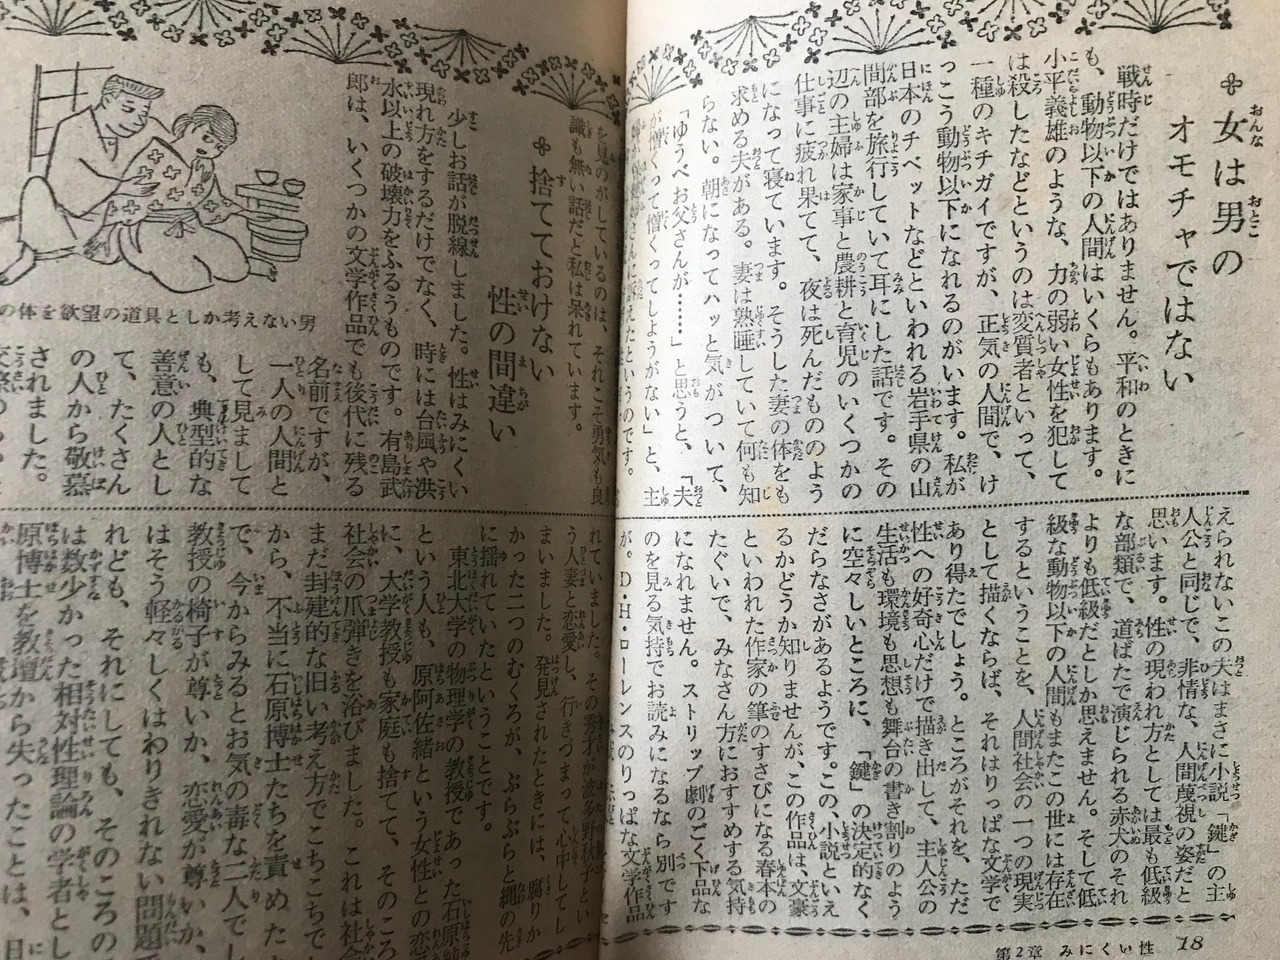 女は男の
オモチャではない
戦時だけではありません。平和のときに
も、動物以下の人間はいくらもあります。
小平義雄のような、力の弱い女性を犯して
は殺したなどというのは変質者といって、
一種のキチガイですが、正気の人間で、け
っこう動物以下になれるのがいます。私が
日本のチベットなどといわれる岩手県の山
間部を旅行していて耳にした話です。その
辺の主婦は家事と農耕と育児のいくつかの
仕事に疲れ果てて、夜は死んだもののよう
になって寝ています。そうした妻の体をも
求める夫がある。妻は熟睡していて何も知
らない。朝になってハッと気がついて、
「ゆうべお父さんが……」と思うと、「夫
が憎くって憎くってしようがない」と、主
えたというのです。
えられないこの夫はまさに小説「鍵」の主
人公と同じで、非情な、人間蔑視の姿だと
思います。性の現われ方としては最も低級
な部類で、道ばたで演じられる赤犬のそれ
よりも低級だとしか思えません。そして低
級な動物以下の人間もまたこの世には存在
するということを、人間社会の一つの現実
として描くならば、それはりっぱな文学で
あり得たでしょう。ところがそれを、ただ
性への好奇心だけで描き出して、主人公の
生活も環境も思想も舞台の書き割りのよう
に空々しいところに、「鍵」の決定的なく
だらなさがあるようです。この、小説といえ
るかどうか知りませんが、この作品は、文豪
といわれた作家の筆のすさびになる春本の
たぐいで、みなさん方におすすめする気持
になれません。ストリップ劇のごく下品な
のを見る気持でお読みになるなら別です
が。D・H・ローレンスのりっぱな文学作品
第2章 みにくい性
18
を見のがしているのは、それこそ勇気も良
識も無い話だと私は呆れています。
捨てておけない
性の間違い
少しお話が脱線しました。性はみにくい
現れ方をするだけでなく、時には台風や洪
水以上の破壊力をふるうものです。有島武
郎は、いくつかの文学作品でも後代に残る
名前ですが、
一人の人間と
して見まして
も、典型的な
善意の人とし
て、たくさん
の人から敬慕
されました。
の体を欲望の道具としか考えない男
れていました。その秀才が波多野秋子とい
う人妻と恋愛し、行きづまって心中してし
まいました。発見されたときには、腐りか
かった二つのむくろが、ぶらぶらと縄の先
に揺れていたということです。
東北大学の物理学の教授であった石原純
という人も、原阿佐緒という女性との恋
に、大学教授も家庭も捨てて、そのころ
社会の爪弾きを浴びました。これは社会
まだ封建的な旧い考え方でこちこちで
から、不当に石原博士たちを責めた
で、今からみるとお気の毒な二人でし
教授の椅子が尊いか、恋愛が尊いか、
はそう軽々しくはわりきれない問題
れども、それにしても、そのころの
は数少かった相対性理論の学者とし
原博士を教壇から失ったことは、日